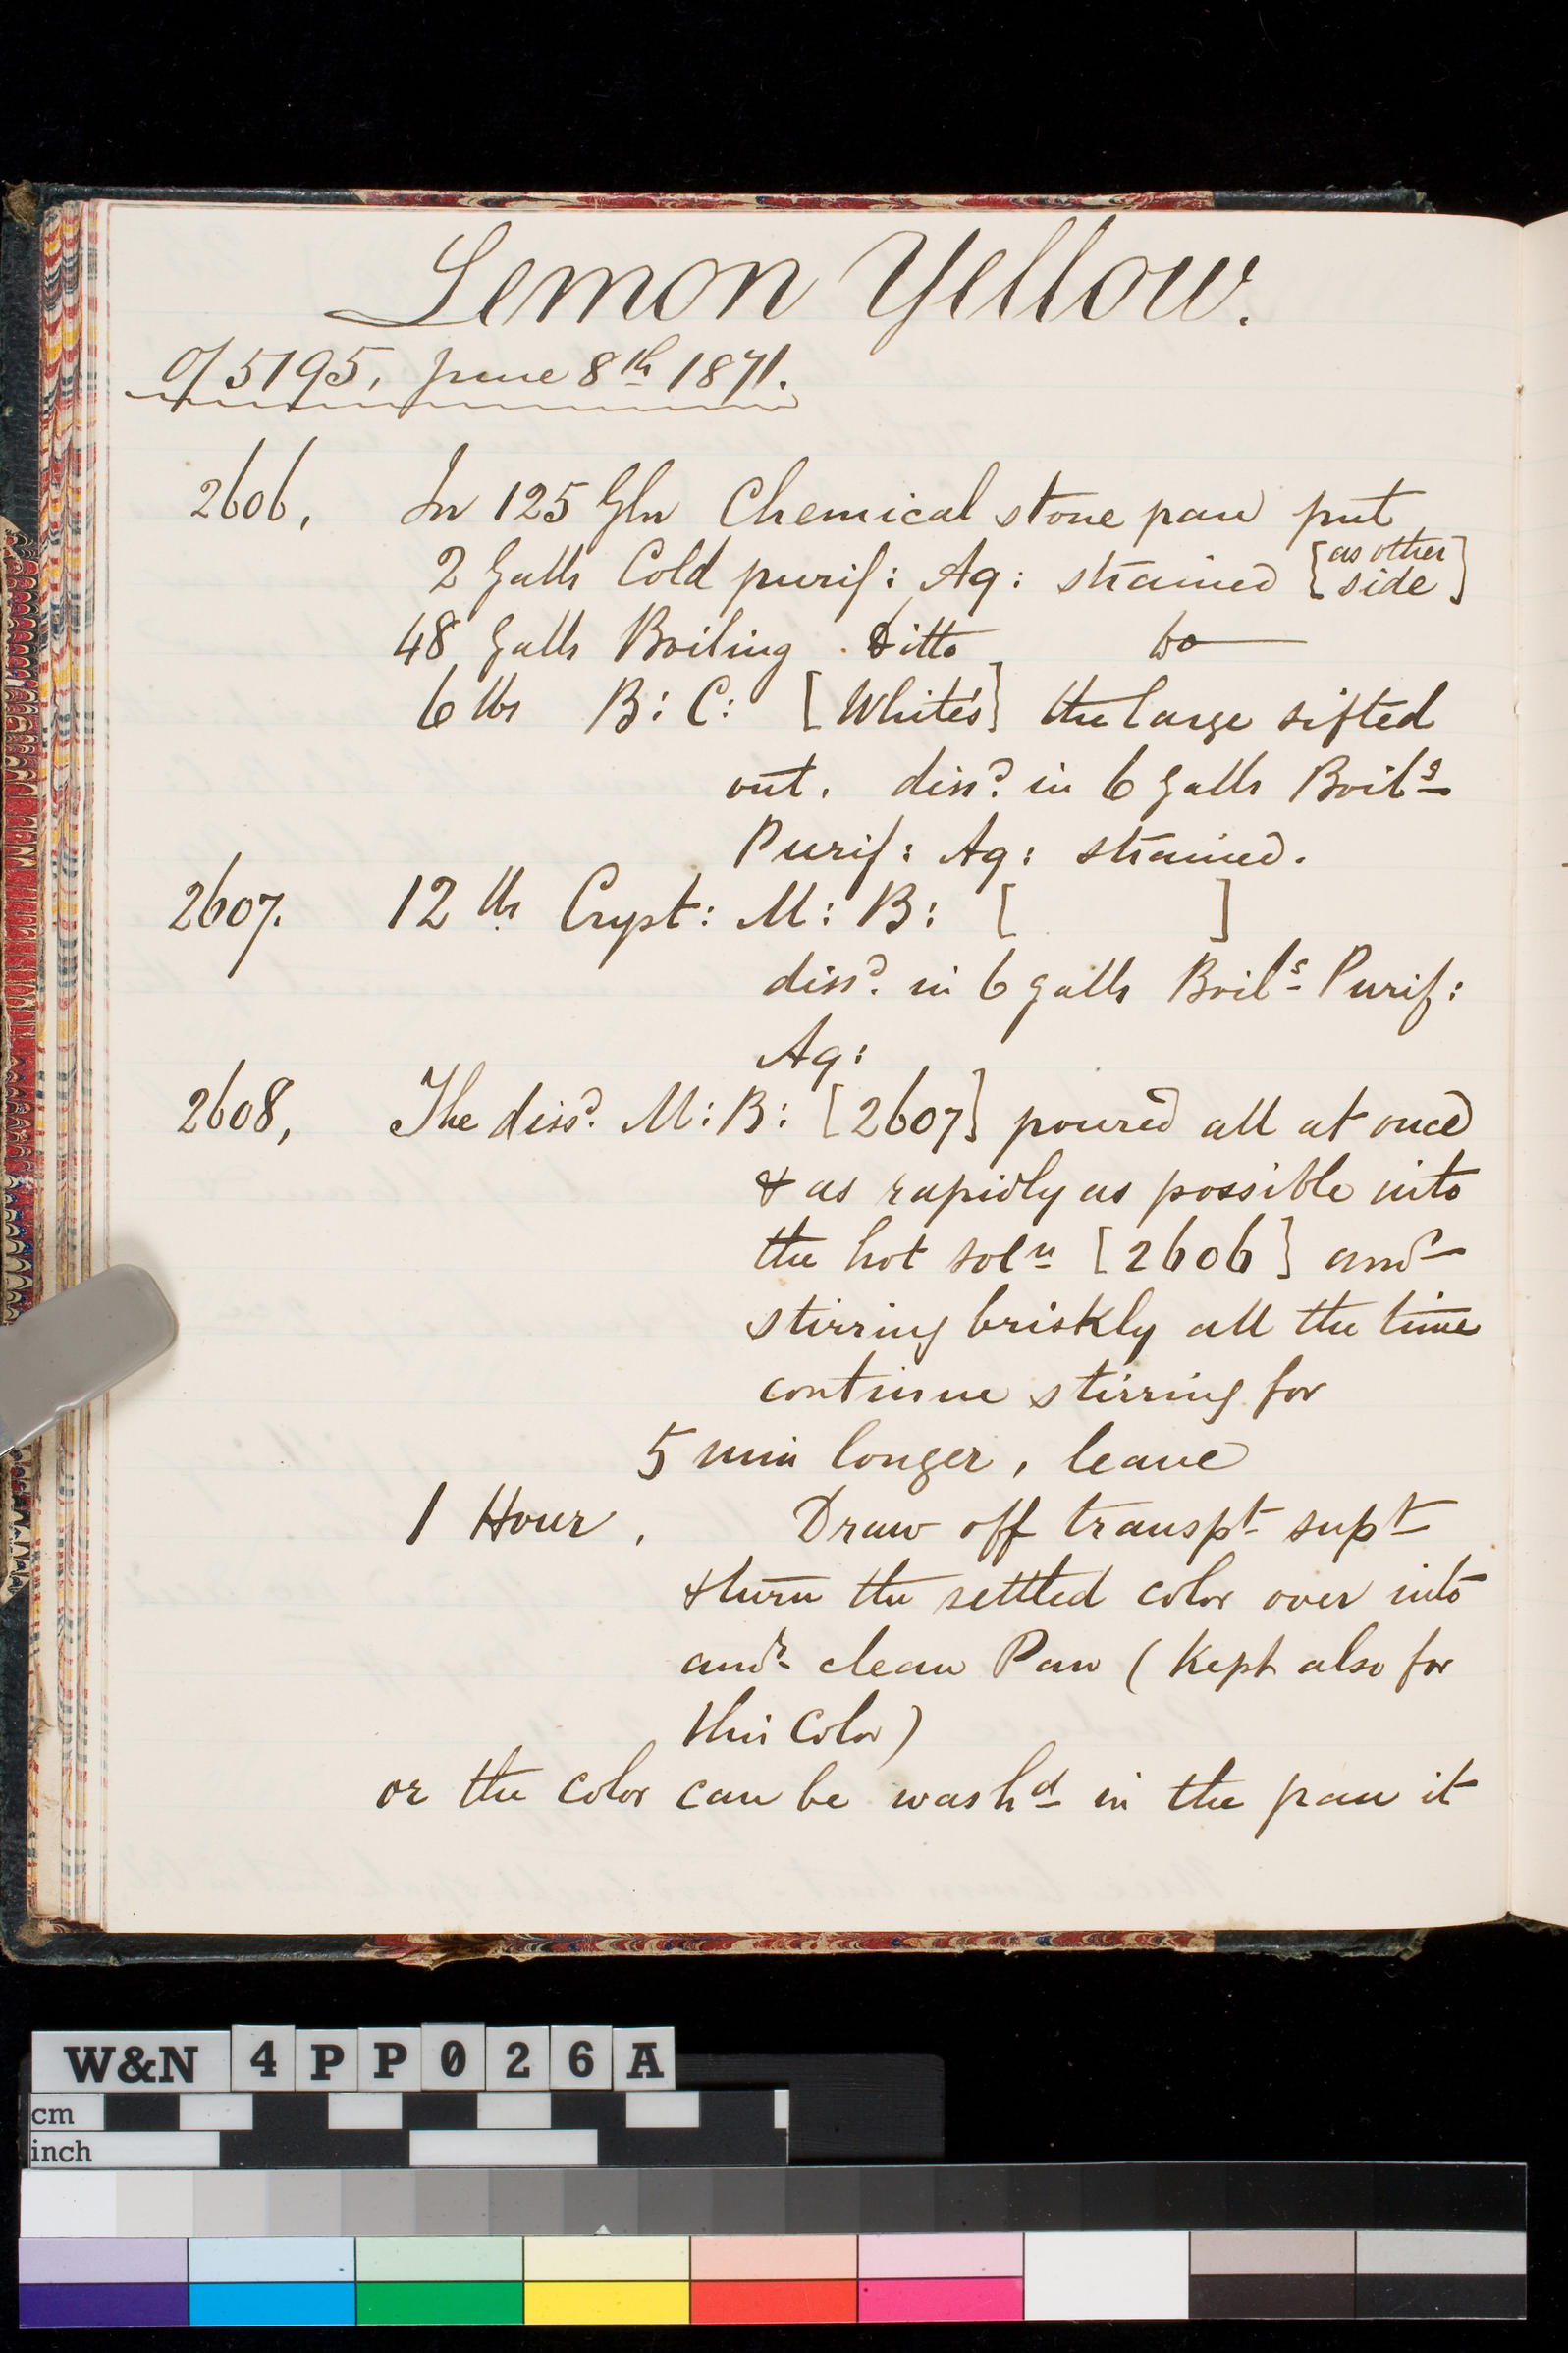 Lemon Yellow.
O/5195, June 8th 1871.
2606, In 125 Gln Chemical stone pan put
2 Galls Cold purif: Aq: strained [as other side]
48 Galls Boiling ditto Do
6 lbs B: C: [White's] the large sifted
out. dissd. in 6 Galls Boilg
Purif: Aq: strained.
2607. 12 lbs Cryst: M: B: [ ]
dissd. in 6 galls Boilg Purif:
Aq:
2608, The dissd. M: B: [2607] poured all at once
& as rapidly as possible into
the hot soln [2606] and
stirring briskly all the time
continue stirring for
5 min longer, leave
1 Hour. Draw off transpt supt
& turn the settled color over into
anor clean Pan (Kept also for
this Color)
or the color can be washd in the pan it
W&N 4PP026A
cm
inch